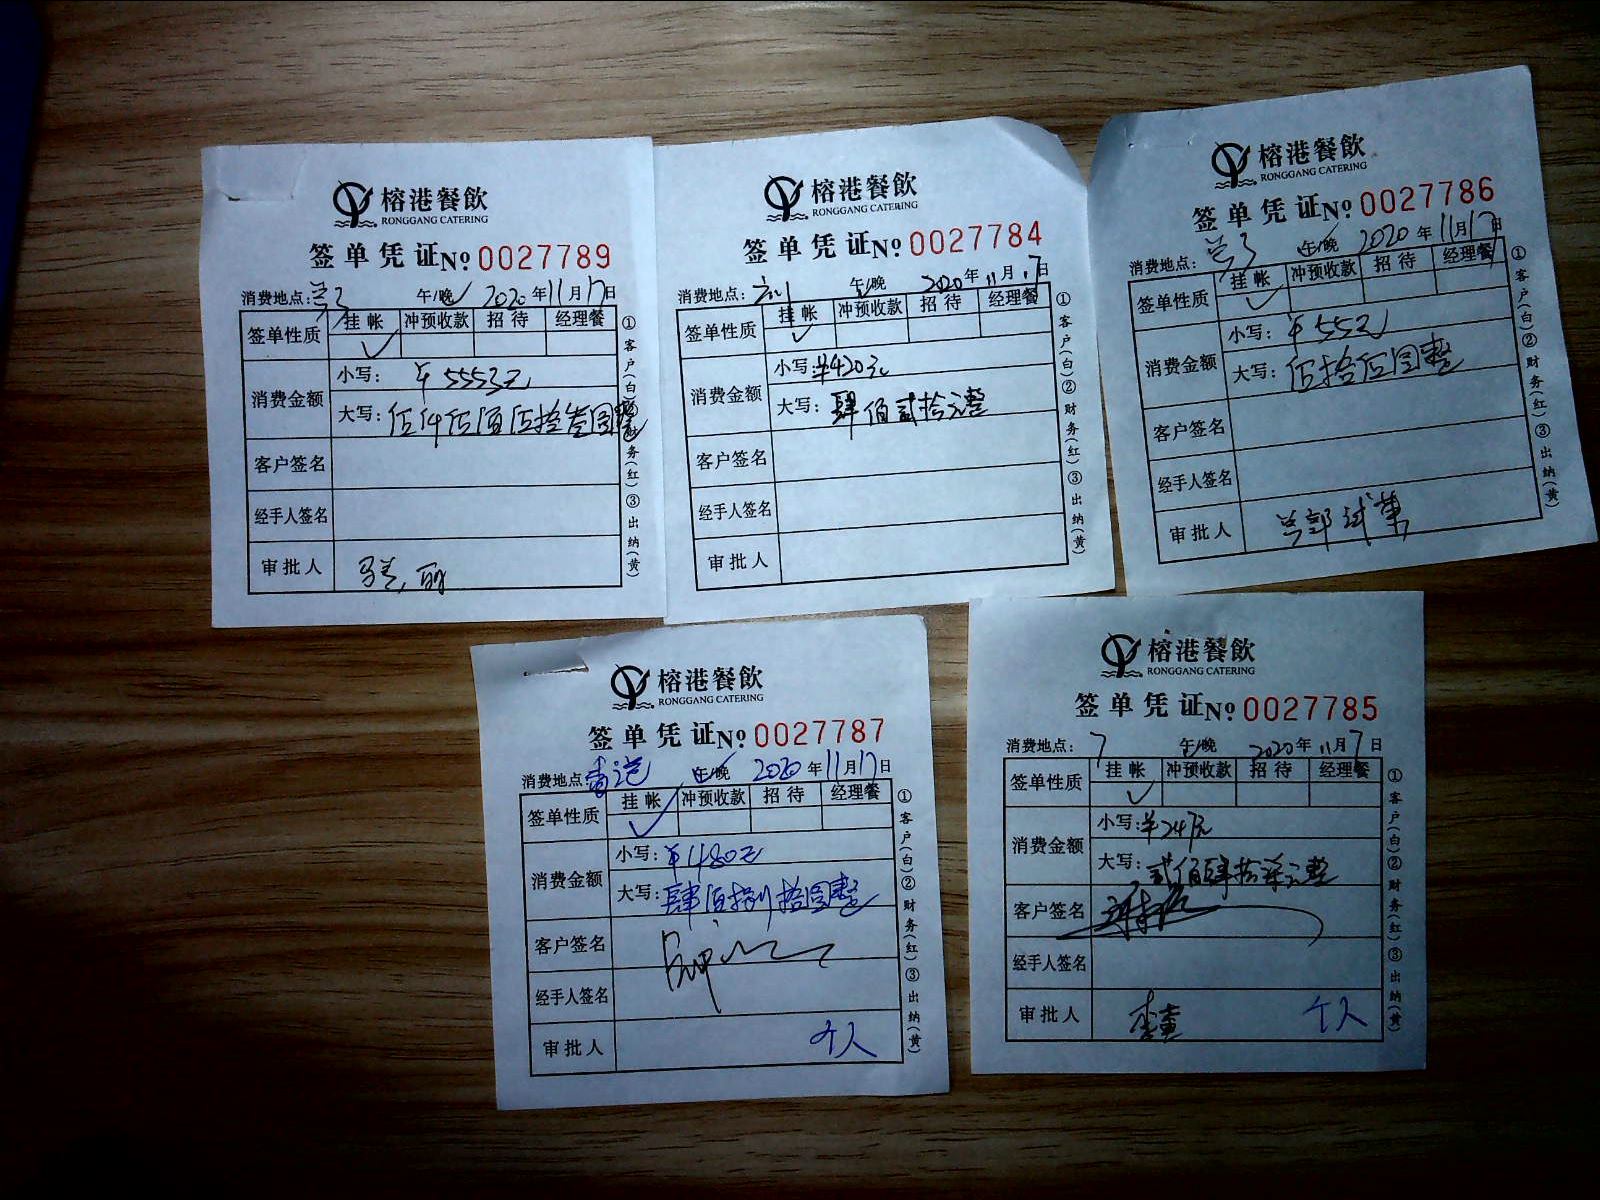 榕港餐飲
RONGGANG CATERING
签单凭证 № 0027789
消费地点: 午/晚 2020年11月17日
签单性质 挂帐 冲预收款 招待 经理餐
消费金额 小写: ¥5553元
大写: 伍仟伍佰伍拾叁圆整
客户签名
经手人签名
审批人
①客户(白)②财务(红)③出纳(黄)
榕港餐飲
RONGGANG CATERING
签单凭证 № 0027784
消费地点: 午/晚 2020年11月17日
签单性质 挂帐 冲预收款 招待 经理餐
消费金额 小写: ¥420元
大写: 肆佰贰拾元整
客户签名
经手人签名
审批人
①客户(白)②财务(红)③出纳(黄)
榕港餐飲
RONGGANG CATERING
签单凭证 № 0027786
消费地点: 午/晚 2020年11月17日
签单性质 挂帐 冲预收款 招待 经理餐
消费金额 小写: ¥55元
大写: 伍拾伍圆整
客户签名
经手人签名
审批人
①客户(白)②财务(红)③出纳(黄)
榕港餐飲
RONGGANG CATERING
签单凭证 № 0027787
消费地点: 午/晚 2020年11月17日
签单性质 挂帐 冲预收款 招待 经理餐
消费金额 小写: ¥480元
大写: 肆佰捌拾圆整
客户签名
经手人签名
审批人 个人
①客户(白)②财务(红)③出纳(黄)
榕港餐飲
RONGGANG CATERING
签单凭证 № 0027785
消费地点: 7 午/晚 2020年11月7日
签单性质 挂帐 冲预收款 招待 经理餐
消费金额 小写: ¥247元
大写: 贰佰肆拾柒元整
客户签名
经手人签名
审批人 李董 个人
①客户(白)②财务(红)③出纳(黄)